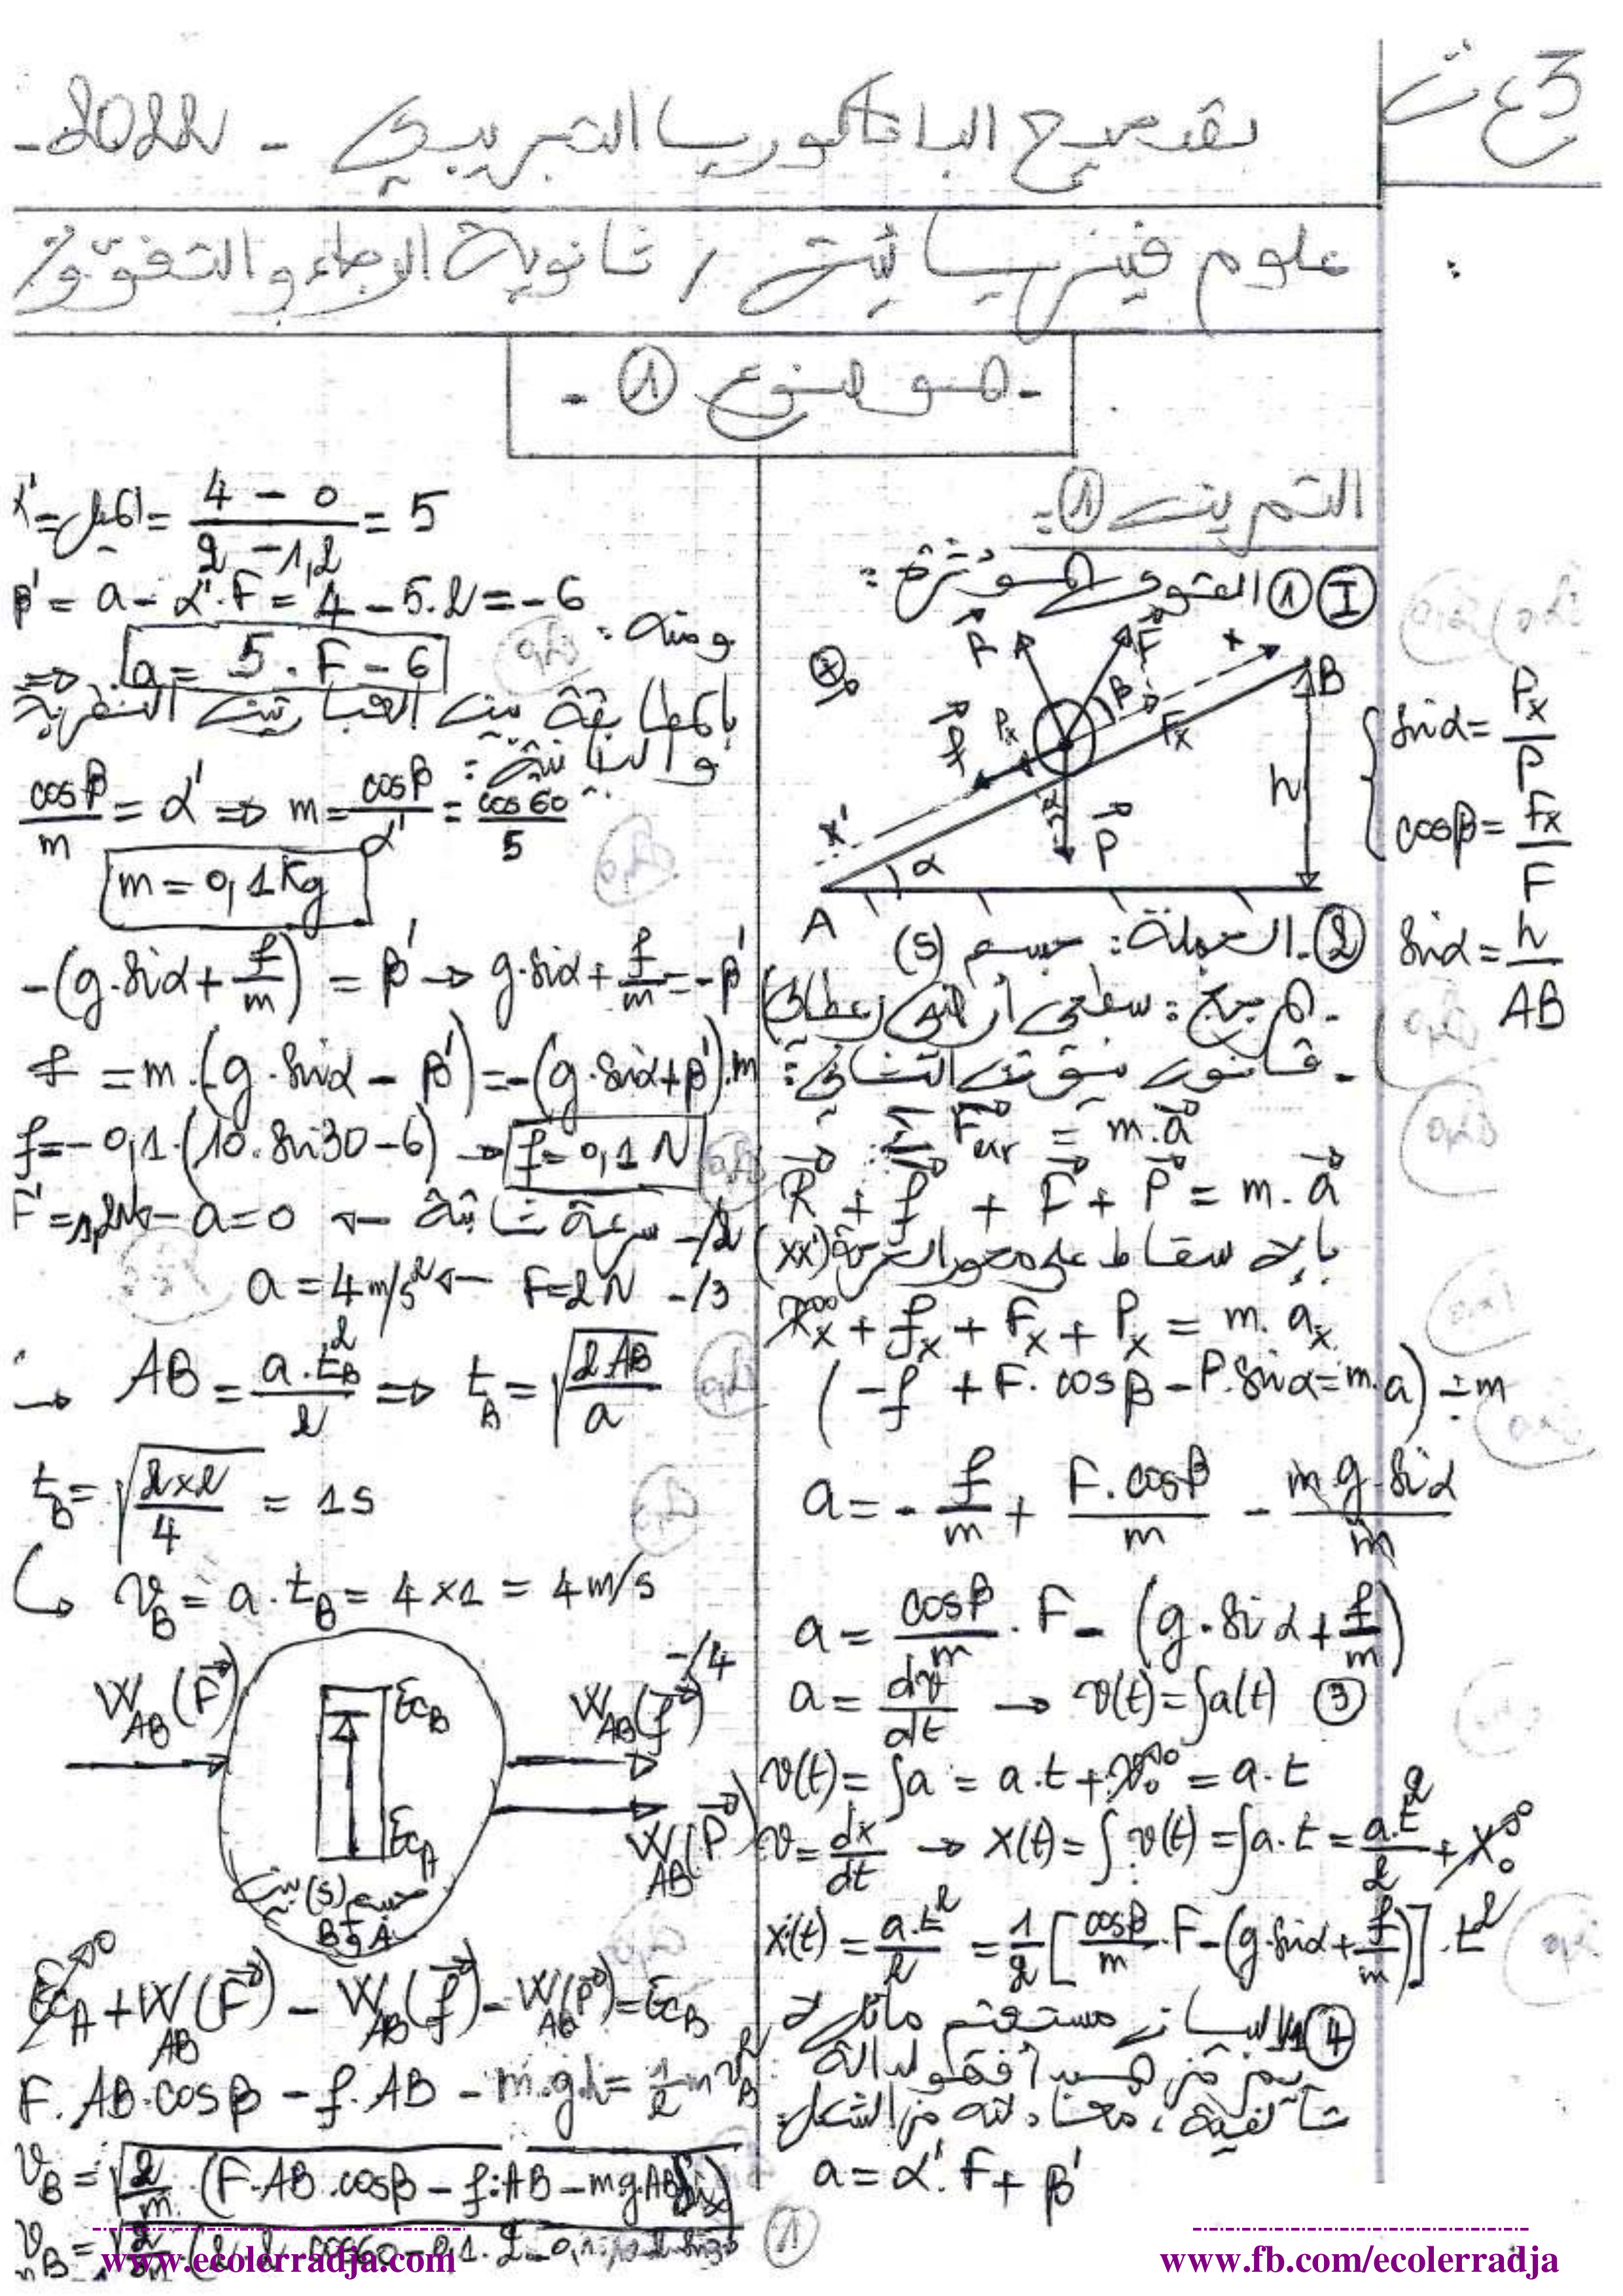 3 ع ت
تصحيح البكالوريا التجريبي - 2022 -
علوم فيزيائية / ثانوية الرجاء والتفوق
- الموضوع ① -
التمرين ① :
Ⓘ ① القوى المؤثرة :
R F x B
β
f Px Fx
h
x' α P
A
sinα = Px/P
cosβ = Fx/F
sinα = h/AB
② - الجملة : جسم (S)
- المرجع : سطحي أرضي (عطالي)
- قانون نيوتن الثاني :
Σ F⃗ = m.a⃗
R⃗ + f⃗ + F⃗ + P⃗ = m.a⃗
بالإسقاط على محور الحركة (xx')
Rx + fx + Fx + Px = m.ax
(-f + F.cosβ - P.sinα = m.a) ÷ m
a = - f/m + F.cosβ/m - m.g.sinα/m
a = cosβ/m . F - (g.sinα + f/m)
a = dv/dt → v(t) = ∫a(t) ③
v(t) = ∫a = a.t + v₀ = a.t
v = dx/dt → x(t) = ∫v(t) = ∫a.t = a.t²/2 + x₀
x(t) = a.t²/2 = 1/2 [cosβ/m . F - (g.sinα + f/m)] . t²
④ 1/ البيان مستقيم مائل لا
يمر من المبدأ فهو لدالة
تآلفية، معادلته من الشكل:
a = α'.F + β'
α' = الميل = (4 - 0)/(2 - 1,2) = 5
β' = a - α'.F = 4 - 5.2 = -6
ومنه :
⇒ a = 5.F - 6
بالمطابقة بين العبارتين النظرية
والبيانية :
cosβ/m = α' ⇒ m = cosβ/α' = cos60/5
m = 0,1 Kg
-(g.sinα + f/m) = β' → g.sinα + f/m = -β'
f = m.(-g.sinα - β') = -(g.sinα + β').m
f = -0,1.(10.sin30 - 6) → f = 0,1 N
2/- سرعة ثابتة ← a = 0 ← F = 1,2N
3/- F = 2N ← a = 4 m/s²
→ AB = a.t²B/2 ⇒ tB = √(2.AB/a)
tB = √(2×2/4) = 1s
↳ vB = a.tB = 4×1 = 4 m/s
4/-
W_AB(F⃗) EcB W_AB(f⃗)
EcA W_AB(P⃗)
جسم (S) بين
A و B
EcA + W_AB(F⃗) - W_AB(f⃗) - W_AB(P⃗) = EcB
F.AB.cosβ - f.AB - m.g.h = 1/2 m v²B
vB = √(2/m . (F.AB.cosβ - f.AB - mg.AB.sinα))
①
www.ecolerradja.com
www.fb.com/ecolerradja